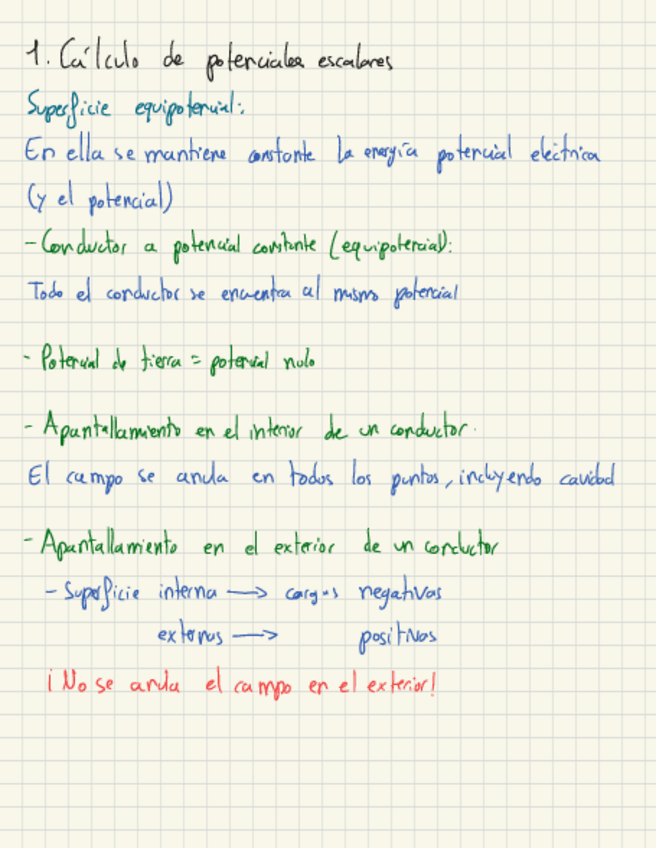 1. Cálculo de potenciales escalares
Superficie equipotencial:
En ella se mantiene constante la energía potencial eléctrica
(y el potencial)
- Conductor a potencial constante (equipotencial):
Todo el conductor se encuentra al mismo potencial
- Potencial de tierra = potencial nulo
- Apantallamiento en el interior de un conductor.
El campo se anula en todos los puntos, incluyendo cavidad
- Apantallamiento en el exterior de un conductor
- Superficie interna → cargas negativas
externas → positivas
¡No se anula el campo en el exterior!